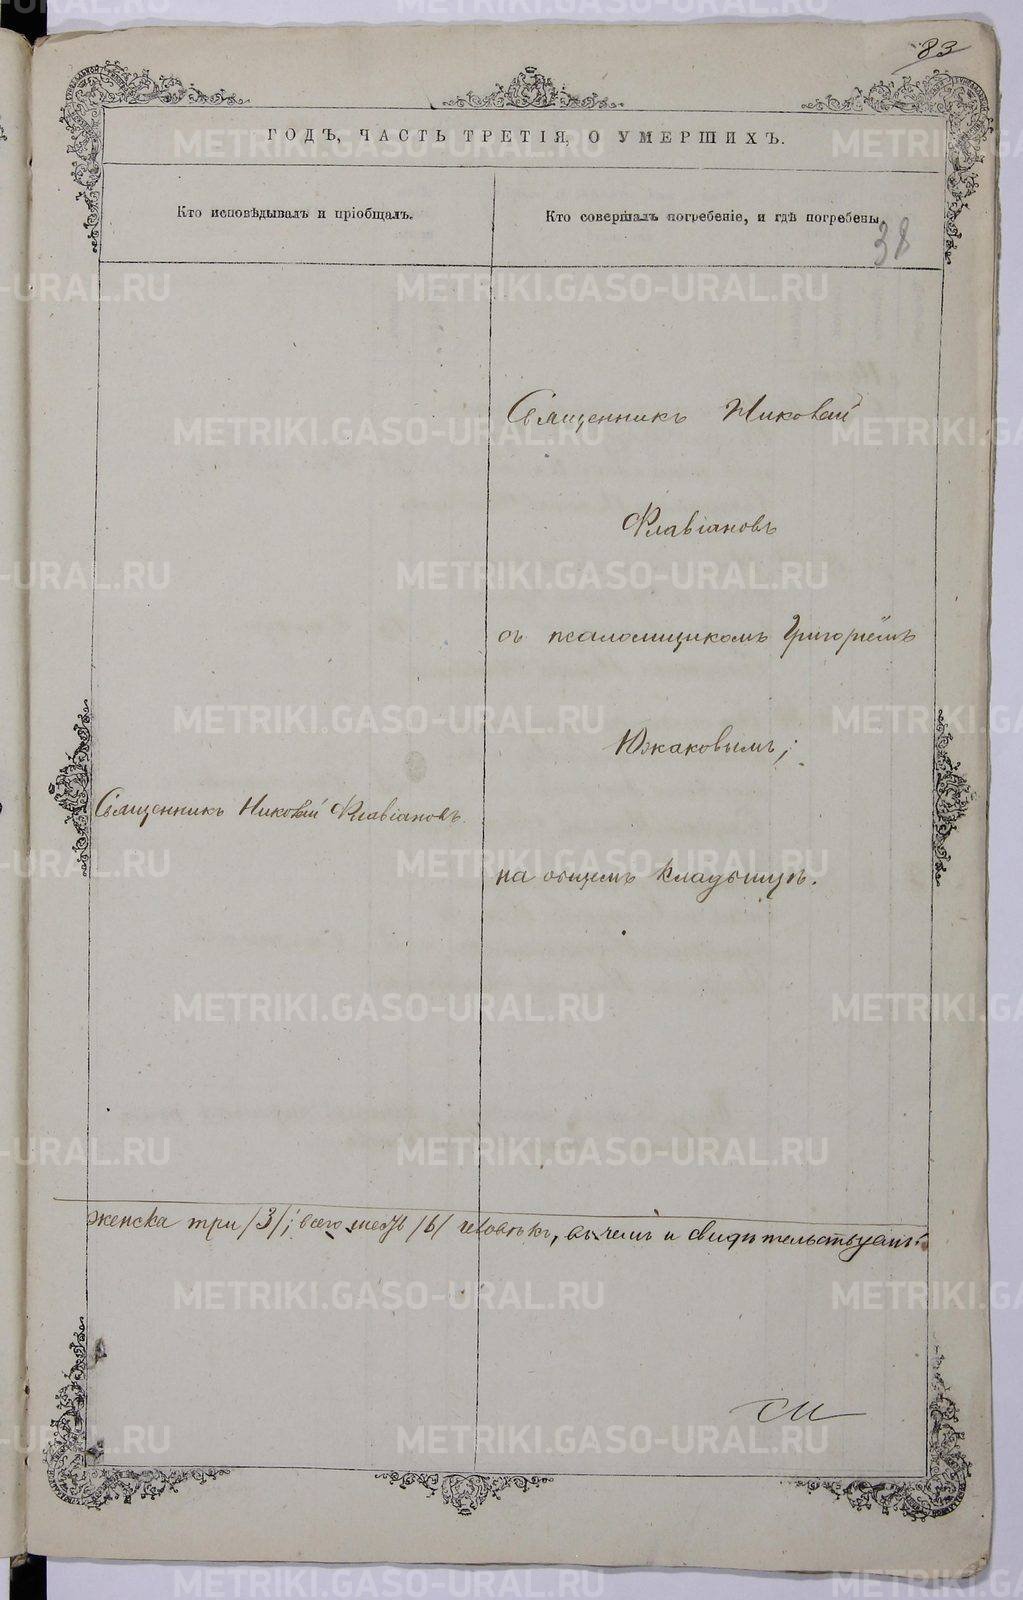 83
ГОДЪ, ЧАСТЬ ТРЕТІЯ, О УМЕРШИХЪ.
Кто исповѣдывалъ и пріобщалъ.
Кто совершалъ погребеніе, и гдѣ погребены.
38
Священникъ Николай
Флавіановъ
съ псаломщикомъ Григоріемъ
Южаковымъ;
Священникъ Николай Флавіановъ.
на общемъ кладбищѣ.
женска три /3/; всего шесть /6/ человѣкъ, въ чемъ и свидѣтельствуемъ:
METRIKI.GASO-URAL.RU